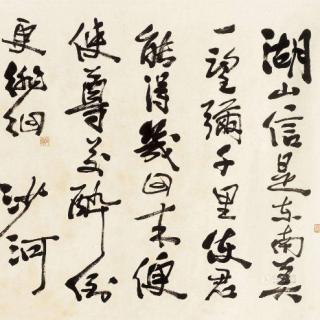 湖山信是东南美
一望彌千里使君
能得幾回来便
使尊前醉倒
更徘徊 沙河